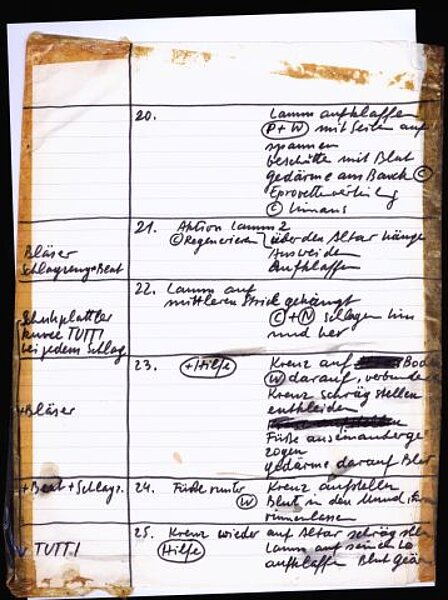 20. Lamm aufklaffen
(P+W) mit Seilen auf
spannen
beschütte mit Blut
gedärme am Bauch (C)
Eprovettenverteilg
(C) hinaus
21. Aktion Lamm 2
(C) Regenerieren über den Altar hänge
Ausweiden
Aufklaffen
Bläser
Schlagzeug+Beat
22. Lamm auf
mittleren Strick gehängt
(C)+(N) schlagen hin
und her
Schuhplattler
kurze TUTTI
bei jedem Schlag
23. (+Hilfe) Kreuz auf Bode
(W) darauf, verbunden
Kreuz schräg stellen
entkleiden
Füße auseinanderge
zogen
gedärme darauf Blut
+Bläser
+Beat+Schlagz. 24. Füße runter Kreuz aufstellen
(W) Blut in den Mund,
rinnenlassen
25. Kreuz wieder auf Altar schräg
(Hilfe) Lamm auf
aufklaffen Blut
TUTTI